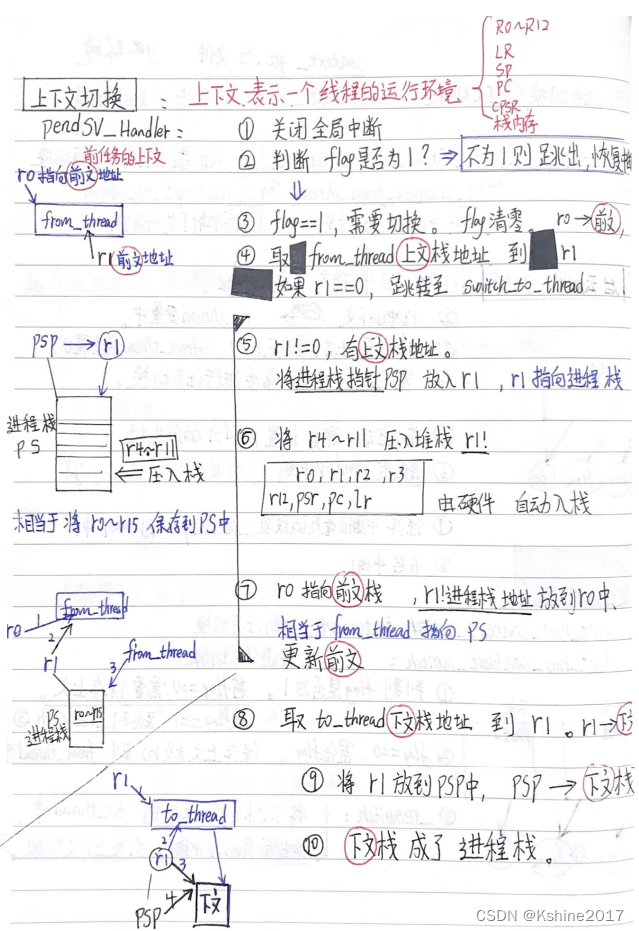 R0~R12
LR
SP
PC
CPSR
栈内存
上下文切换 : 上下文表示一个线程的运行环境
PendSV_Handler:
① 关闭全局中断
前任务的上下文
② 判断 flag是否为1? ⇒ 不为1则跳出,恢复
r0指向前文地址
from_thread
r1前文地址
③ flag==1,需要切换。 flag清零。 r0→前文,
④ 取 from_thread 上文栈地址 到 r1
如果 r1==0, 跳转至 switch_to_thread
⑤ r1!=0, 有上文栈地址。
将进程栈指针PSP 放入r1 ,r1指向进程栈
PSP → r1
进程栈
PS
r4~r11
⇐ 压入栈
⑥ 将 r4~r11 压入堆栈 r1!
r0, r1, r2, r3
r12, psr, pc, lr
由硬件 自动入栈
相当于将 r0~r15 保存到PS中
⑦ r0 指向前文栈 ,r1!进程栈地址放到r0中,
相当于from_thread指向 PS
更新前文
from_thread
r0 1
2
r1
from_thread
3
PS
进程栈
r0~r15
⑧ 取 to_thread 下文栈地址 到 r1 。r1→下文
⑨ 将 r1 放到PSP中, PSP → 下文栈
⑩ 下文栈 成了 进程栈。
r1
to_thread
2
r1 3
PSP 4
下文
CSDN @Kshine2017